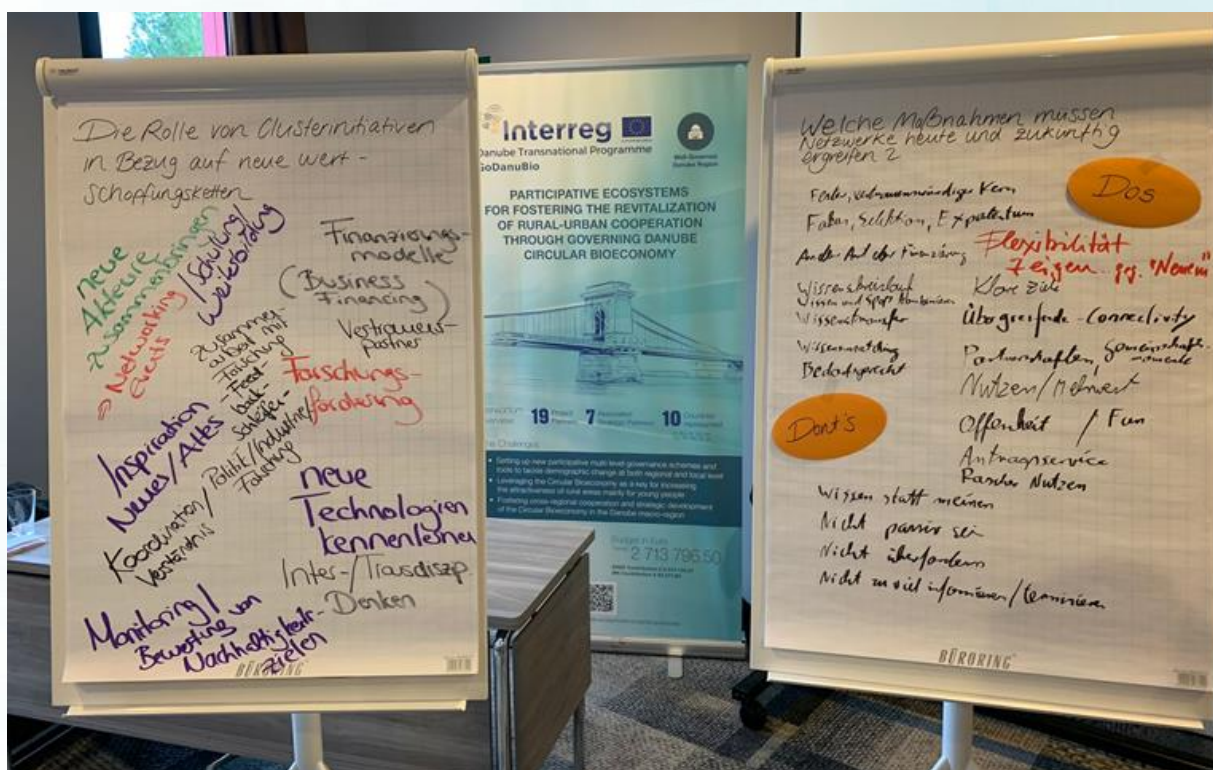 Die Rolle von Clusterinitiativen
in Bezug auf neue Wert-
schöpfungsketten
neue
Akteure
zusammenbringen
=> Networking
Events
/Schulung/
Weiterbildung
Finanzierungs-
modelle
(Business
Financing)
Vertrauens-
partner
Zusammen-
arbeit mit
Forschung
Feed-
back-
schleifen
Forschungs-
förderung
Inspiration
Neues/Altes
Koordination/Politik/Industrie/
Verständnis
Forschung
neue
Technologien
kennenlernen
Inter-/Transdiszip.
Denken
Monitoring/
Bewertung von
Nachhaltigkeits-
zielen
BÜRORING
Interreg
Danube Transnational Programme
GoDanuBio
Well-Governed
Danube Region
PARTICIPATIVE ECOSYSTEMS
FOR FOSTERING THE REVITALIZATION
OF RURAL-URBAN COOPERATION
THROUGH GOVERNING DANUBE
CIRCULAR BIOECONOMY
19 Project Partners
7 Associated Strategic Partners
10 Countries represented
Challenges
• Setting up new participative multi level governance schemes and
tools to tackle demographic change at both regional and local level
• Leveraging the Circular Bioeconomy as a key for increasing
the attractiveness of rural areas mainly for young people
• Fostering cross-regional cooperation and strategic development
of the Circular Bioeconomy in the Danube macro-region
Budget in Euro
2 713 796,50
Welche Maßnahmen müssen
Netzwerke heute und zukünftig
ergreifen?
Dos
Fester, vertrauenswürdiger Kern
Fokus, Selektion, Expertentum
Flexibilität
zeigen gg. "Neuem"
Klare Ziele
Wissenskreislauf
Wissen und Spaß kombinieren
Wissenstransfer
Übergreifende Connectivity
Bedarfsgerecht
Partnerschaften, Gemeinschafts-
momente
Nutzen/Mehrwert
Offenheit / Fun
Antragsservice
Rascher Nutzen
Dont's
Wissen statt meinen
Nicht passiv sein
Nicht überfordern
Nicht zu viel informieren/
BÜRORING